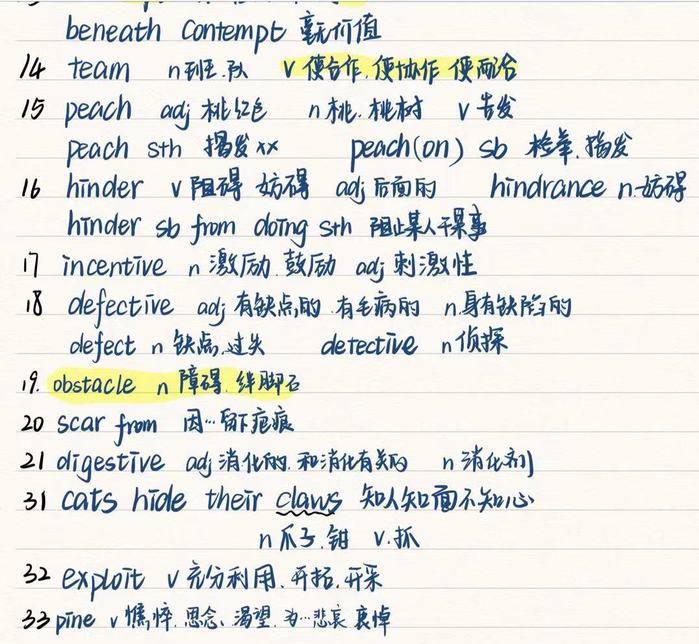 beneath contempt 毫无价值
14 team n班.队 v 使合作.使协作 使配合
15 peach adj 桃红色 n桃.桃树 v 告发
peach sth 揭发xx peach(on) sb 检举.揭发
16 hinder v阻碍 妨碍 adj后面的 hindrance n.妨碍
hinder sb from doing sth 阻止某人干某事
17 incentive n 激励.鼓励 adj 刺激性
18 defective adj 有缺点的.有毛病的 n.身有缺陷的
defect n 缺点.过失 detective n侦探
19. obstacle n 障碍.绊脚石
20 scar from 因…留下疤痕
21 digestive adj 消化的.和消化有关的 n 消化剂
31 cats hide their claws 知人知面不知心
n爪子.钳 v.抓
32 exploit v 充分利用.开拓.开采
33 pine v 憔悴.思念、渴望.为…悲哀 哀悼